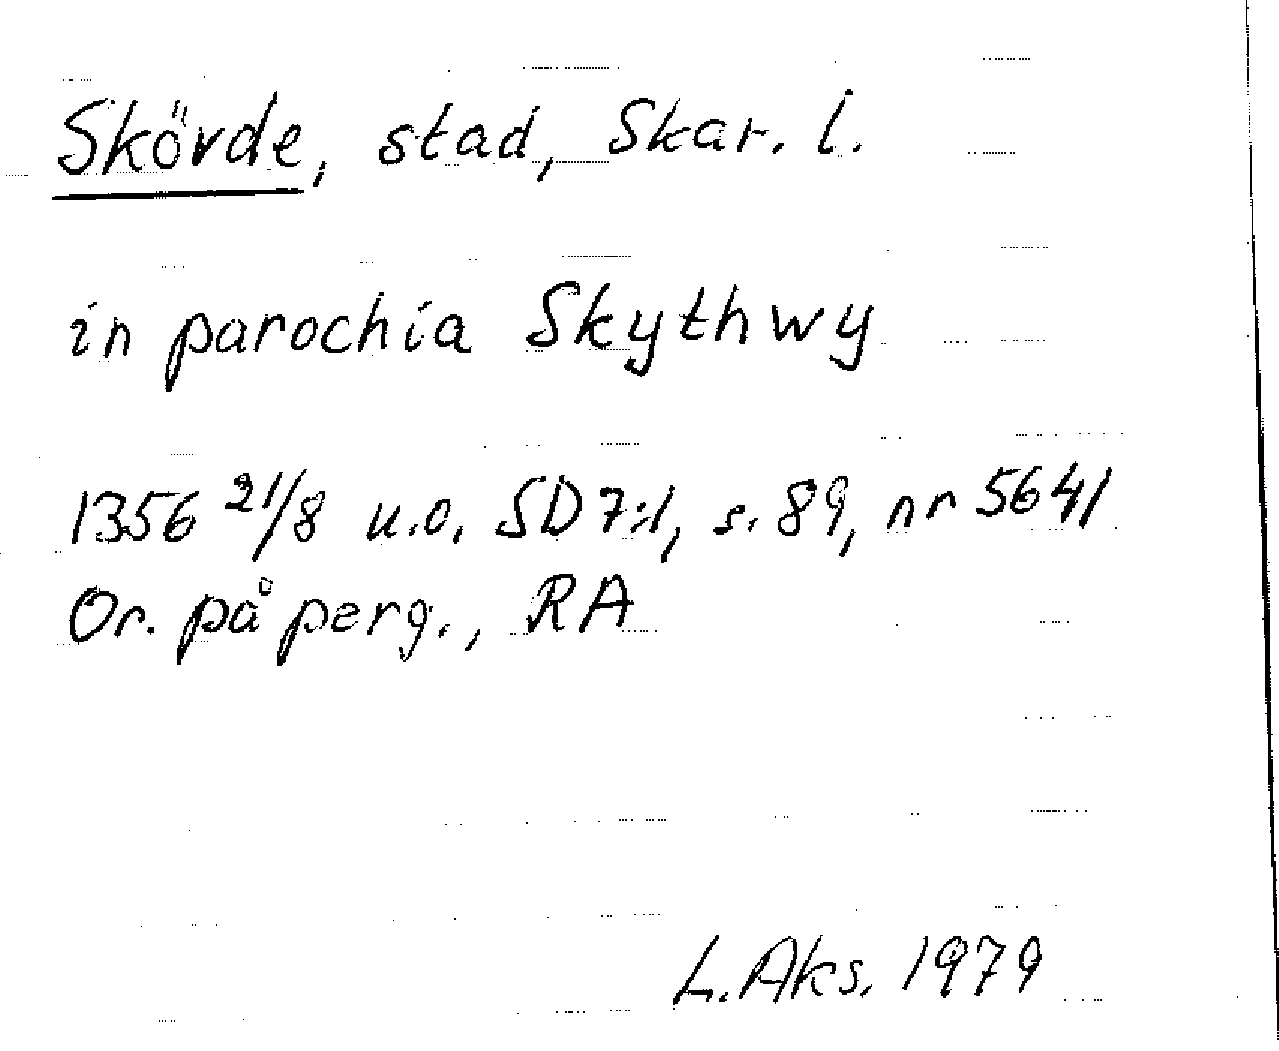 Skövde, stad, Skar. l.
in parochia Skythwy
1356 21/8 u.o. SD 7:1, s. 89, nr 5641
Or. på perg., RA
L. Aks. 1979